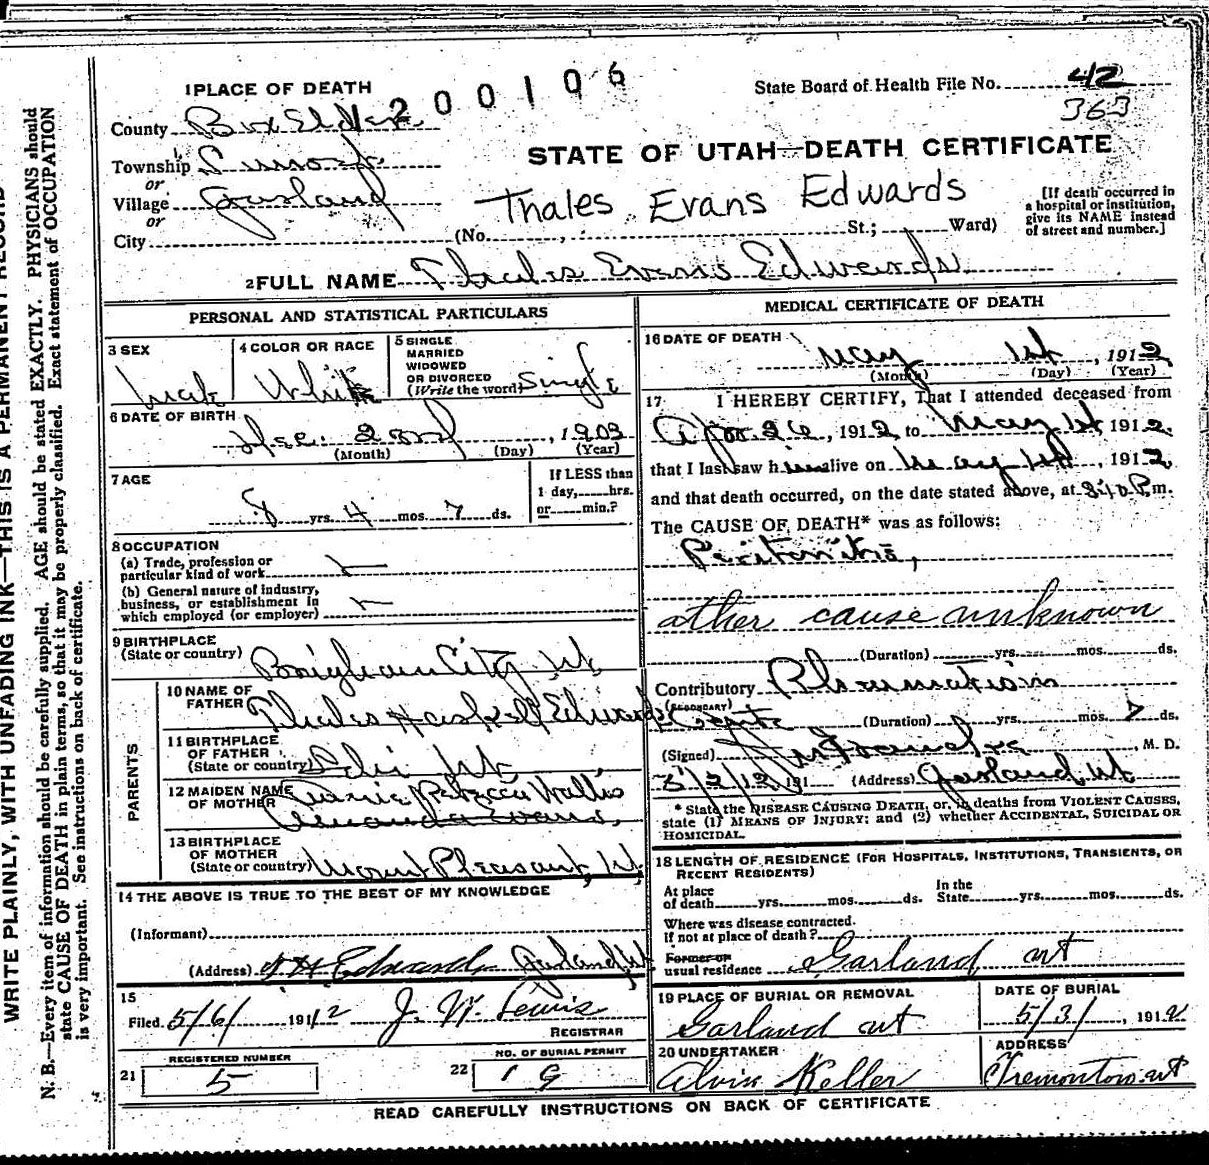 1 PLACE OF DEATH
200106
State Board of Health File No. 42
363
County Box Elder
Township
or
Village Garland
or
City
STATE OF UTAH—DEATH CERTIFICATE
Thales Evans Edwards
(No. , St.; Ward)
[If death occurred in a hospital or institution, give its NAME instead of street and number.]
2 FULL NAME Thales Evans Edwards
PERSONAL AND STATISTICAL PARTICULARS
3 SEX
Male
4 COLOR OR RACE
White
5 SINGLE MARRIED WIDOWED OR DIVORCED (Write the word) Single
6 DATE OF BIRTH
Dec. 23rd, 1903
(Month) (Day) (Year)
7 AGE
If LESS than 1 day, hrs. or min.?
8 yrs. 4 mos. 7 ds.
8 OCCUPATION
(a) Trade, profession or particular kind of work
(b) General nature of industry, business, or establishment in which employed (or employer)
9 BIRTHPLACE
(State or country) Brigham City, Ut.
PARENTS
10 NAME OF FATHER Thales Haskell Edwards
11 BIRTHPLACE OF FATHER (State or country) Ut
12 MAIDEN NAME OF MOTHER Rebecca Wallis
Amanda Evans,
13 BIRTHPLACE OF MOTHER (State or country) Mount Pleasant, Ut.
14 THE ABOVE IS TRUE TO THE BEST OF MY KNOWLEDGE
(Informant)
(Address) T H Edwards Garland, Ut
15
Filed 5/6/ 1912 J. W. Lewis
REGISTRAR
21 REGISTERED NUMBER
5
22 NO. OF BURIAL PERMIT
19
MEDICAL CERTIFICATE OF DEATH
16 DATE OF DEATH
May 1st, 1912
(Month) (Day) (Year)
17 I HEREBY CERTIFY, That I attended deceased from
Apr. 26, 1912 to May 1st 1912
that I last saw him alive on May 1st, 1912,
and that death occurred, on the date stated above, at 8:40 P.m.
The CAUSE OF DEATH* was as follows:
Peritonitis,
other cause unknown
(Duration) yrs. mos. ds.
Contributory Rheumatism
(SECONDARY)
(Duration) yrs. mos. 7 ds.
(Signed) M. D.
5/2/12 191 (Address) Garland, Ut
* State the DISEASE CAUSING DEATH, or, in deaths from VIOLENT CAUSES, state (1) MEANS OF INJURY; and (2) whether ACCIDENTAL, SUICIDAL OR HOMICIDAL.
18 LENGTH OF RESIDENCE (FOR HOSPITALS, INSTITUTIONS, TRANSIENTS, OR RECENT RESIDENTS)
At place of death yrs. mos. ds.
In the State yrs. mos. ds.
Where was disease contracted. If not at place of death?
Former or usual residence Garland Ut
19 PLACE OF BURIAL OR REMOVAL
Garland Ut
DATE OF BURIAL
5/3/, 1912
20 UNDERTAKER
Alvin Keller
ADDRESS
Tremonton Ut
READ CAREFULLY INSTRUCTIONS ON BACK OF CERTIFICATE
WRITE PLAINLY, WITH UNFADING INK—THIS IS A PERMANENT RECORD
N. B.—Every item of information should be carefully supplied. AGE should be stated EXACTLY. PHYSICIANS should
state CAUSE OF DEATH in plain terms, so that it may be properly classified. Exact statement of OCCUPATION
is very important. See instructions on back of certificate.